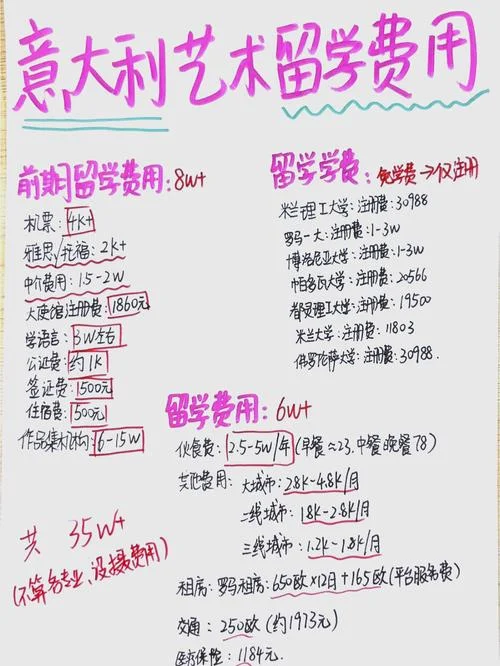 意大利艺术留学费用
前期留学费用:8w+
机票:4K+
雅思/托福:2K+
中介费用:1.5-2w
大使馆注册费:1860元
学语言:3w左右
公证费:约1K
签证费:1500元
住宿费:500元
作品集机构:6-15w
共 35w+
(不算各专业、设摄费用)
留学学费:免学费→仅注册
米兰理工大学:注册费:30988
罗马一大:注册费:1-3w
博洛尼亚大学:注册费:1-3w
帕多瓦大学:注册费:20566
都灵理工大学:注册费:19500
米兰大学:注册费:11803
佛罗伦萨大学:注册费:30988.
留学费用:6w+
伙食费:2.5-5w/年(早餐≈23.中餐晚餐78)
其他费用:大城市:2.8K-4.8K/月
二线城市:1.8K-2.8K/月
三线城市:1.2K-1.8K/月
租房:罗马租房:650欧×12月+165欧(平台服务费)
交通:250欧(约1973元)
医疗保险:1184元